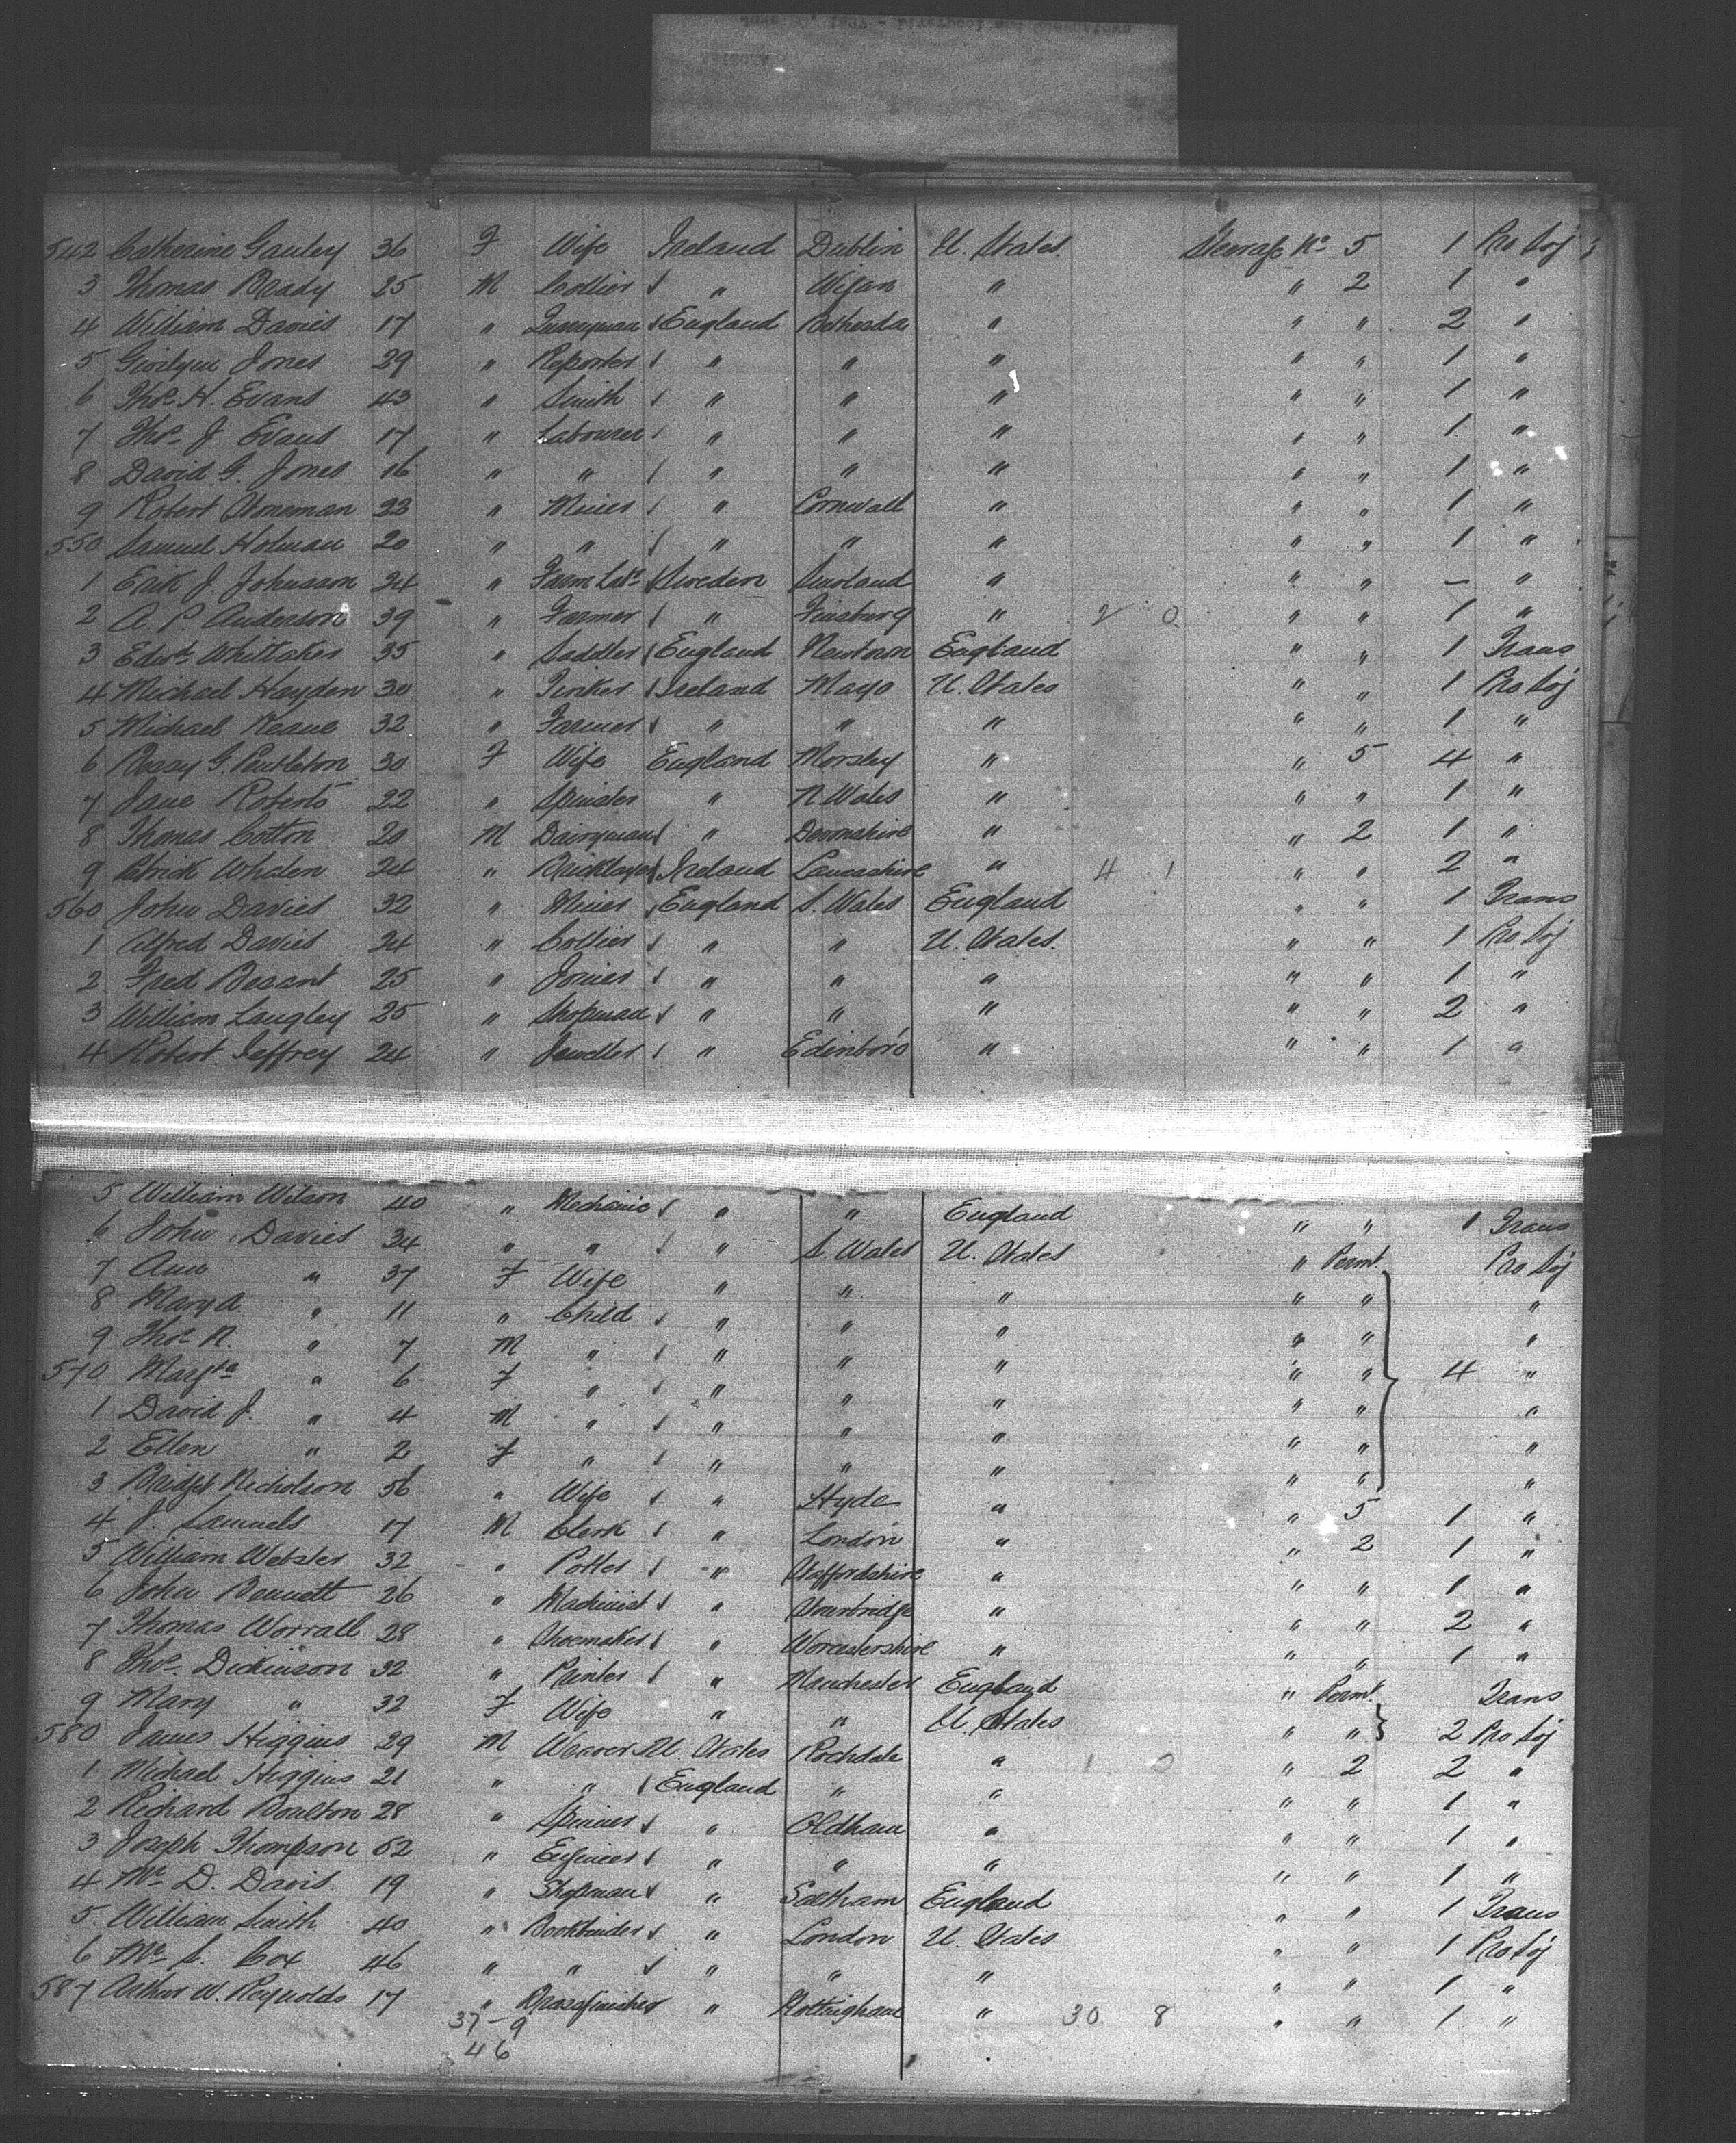 542 Catherine Gauley 36 F Wife Ireland Dublin U. States Steerage No 5 1 Pro Soj
3 Thomas Brady 25 M Collier " Wigan " " 2 1 "
4 William Davies 17 " Quarryman England Bethesda " " " 2 "
5 Gwilym Jones 29 " Reporter " " " " " 1 "
6 Thos. H. Evans 43 " Smith " " " " " 1 "
7 Thos. J. Evans 17 " Labourer " " " " " 1 "
8 David G. Jones 16 " " " " " " " 1 "
9 Robert 23 " Miner " Cornwall " " " 1 "
550 Samuel Holman 20 " " " " " " " 1 "
1 Erik J. Johnsson 24 " Farm Labr Sweden " " " — "
2 A. P. Anderson 39 " Farmer " " 2 0 " " 1 "
3 Edwd. Whittaker 35 " Saddler England Newtown England " " 1 Trans
4 Michael Hayden 30 " Tinker Ireland Mayo U. States " " 1 Pro Soj
5 Michael Keane 32 " Farmer " " " " " 1 "
6 Bessy G. Pendleton 30 F Wife England Morsley " " 5 4 "
7 Jane Roberts 22 " Spinster " N. Wales " " " 1 "
8 Thomas Cotton 20 M Dairyman " Devonshire " " 2 1 "
9 Patrick Whalen 24 " Bricklayer Ireland Lancashire " 4 1 " " 2 "
560 John Davies 32 " Miner England S. Wales England " " 1 Trans
1 Alfred Davies 24 " Collier " " U. States. " " 1 Pro Soj
2 Fred Besant 25 " Joiner " " " " " 1 "
3 William Langley 25 " Shopman " " " " " 2 "
4 Robert Jeffrey 24 " Jeweller " Edinboro " " " 1 "
5 William Wilson 40 " Mechanic " " England " " 1 Trans
6 John Davies 34 " " " S. Wales U. States " Permt. Pro Soj
7 Ann " 37 F Wife " " " " " "
8 Mary A. " 11 " Child " " " " " "
9 Thos. R. " 7 M " " " " " " 4 "
570 Margta " 6 F " " " " " " "
1 David J. " 4 M " " " " " " "
2 Ellen " 2 F " " " " " " "
3 Bridget Nicholson 56 " Wife " Hyde " " 5 1 "
4 J. Samuels 17 M Clerk " London " " 2 1 "
5 William Webster 32 " Potter " Staffordshire " " " 1 "
6 John Bennett 26 " Machinist " Stourbridge " " " 2 "
7 Thomas Worrall 28 " Shoemaker " Worcestershire " " " 1 "
8 Thos. Dickinson 32 " Printer " Manchester England " Permt. Trans
9 Mary " 32 F Wife " " U. States " " 2 Pro Soj
580 James Higgins 29 M Weaver U. States Rochdale " 1 0 " 2 2 "
1 Michael Higgins 21 " " England " " " " 1 "
2 Richard Boulton 28 " Spinner " Oldham " " " 1 "
3 Joseph Thompson 52 " Engineer " " " " " 1 "
4 Mr. D. Davis 19 " Shopman " Saltham England " " 1 Trans
5 William Smith 40 " Bookbinder " London U. States " " 1 Pro Soj
6 Mr. S. Cox 46 " " " " " " " 1 "
587 Arthur W. Reynolds 17 " Brassfinisher " Nottingham " 30 8 " " 1 "
37-9
46